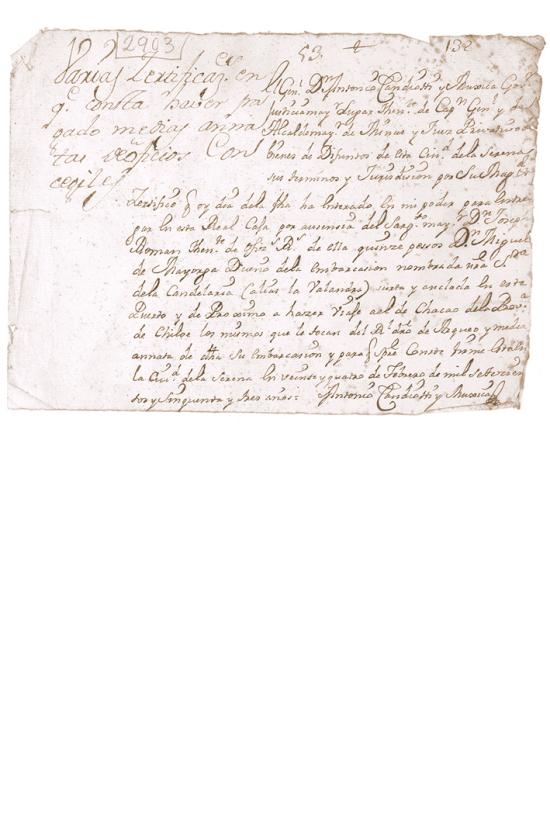 2903
53
132
Varias Zertificaz.es en
q.e consta haver pa
gado medias anna
tas de oficios Con
cegiles
El Gen.l D.n Antonio Candioti y Muxica Gov.r
Justicia may.r Lugar Then.te de Cap.n Gen.l y de
Alcalde may.r de Minas y Juez Privativo de
bienes de Difuntos de esta Ciu.d de la Serena
sus terminos y Jurisdision por Su Mag.d
Zertifico q oy dia de la fha ha enterado en mi poder para
por en esta Real Caja por ausensia del Sarg.to may.r D.n Josep
Roman Then.te de Ofis.s R.s de ella quinze pesos D.n Miguel
de Mayorga Dueño dela embarcasion nombrada nrã S.ra
dela Candelaria (alias la Valandra) surta y anclada en este
Puerto y de Proximo a hazer Viaje al de Chacao dela Prov.a
de Chiloe los mismos que le tocan del R.l dro de y media
annata de dha su embarcasion y para q Conste firme
la Ciu.d dela Serena en veinte y quatro de Febrero de mil setecien
tos y sinquenta y tres años= Antonio Candioti y Muxica